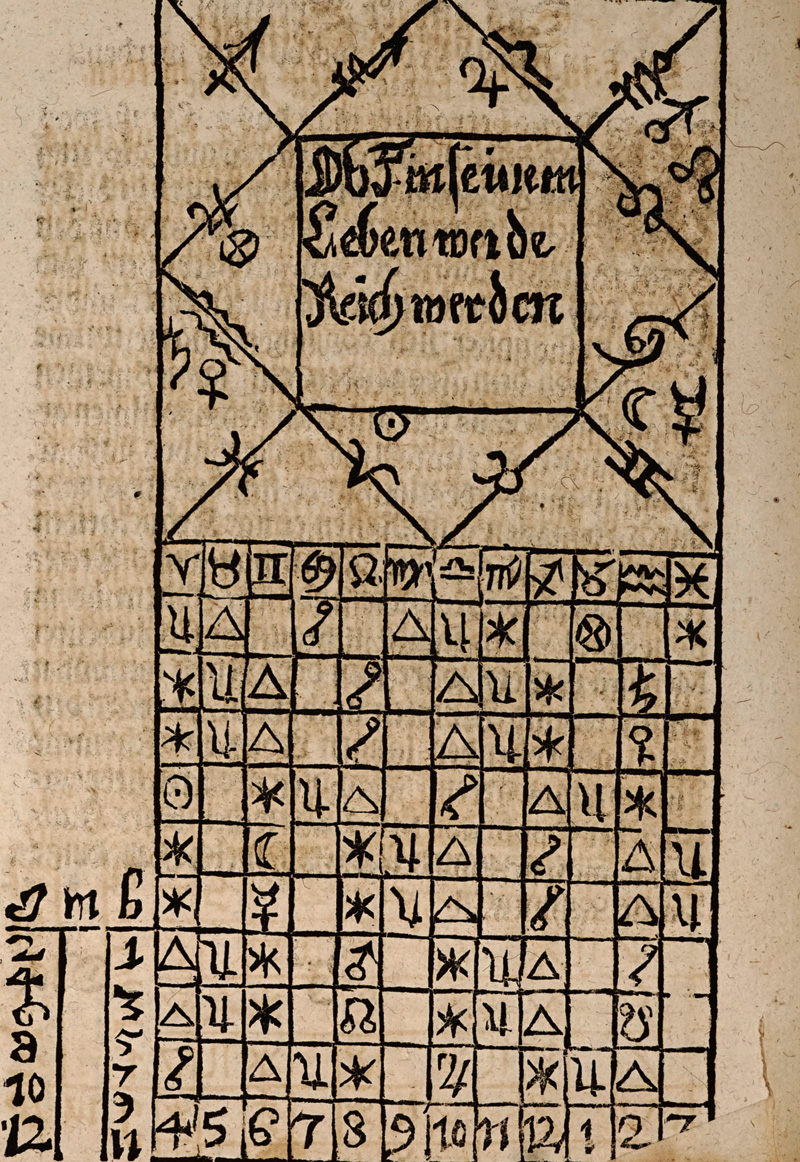 Ob F. in seinem
Leben werde
Reich werden
m b
2
4
6
8
10
12
1
3
5
7
9
11
4 5 6 7 8 9 10 11 12 1 2